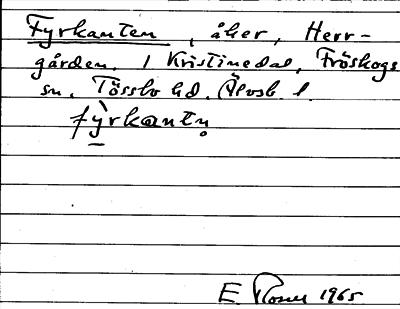 Fyrkanten, åker, Herr-
gården. / Kristinedal, Fröskogs
sn. Tössbo hd. Älvsb. l.
fỳ̱rkantn̥
E. 1965